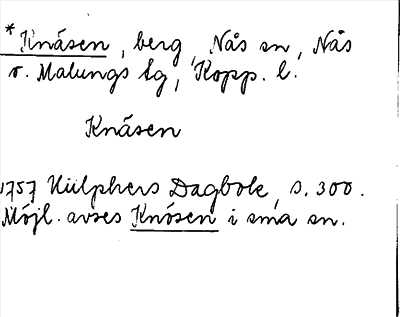 *Knåsen, berg, Nås sn, Nås
o. Malungs tg, Kopp. l.
Knåsen
1757 Hülphers Dagbok, s. 300.
Möjl. avses Knösen i sma sn.